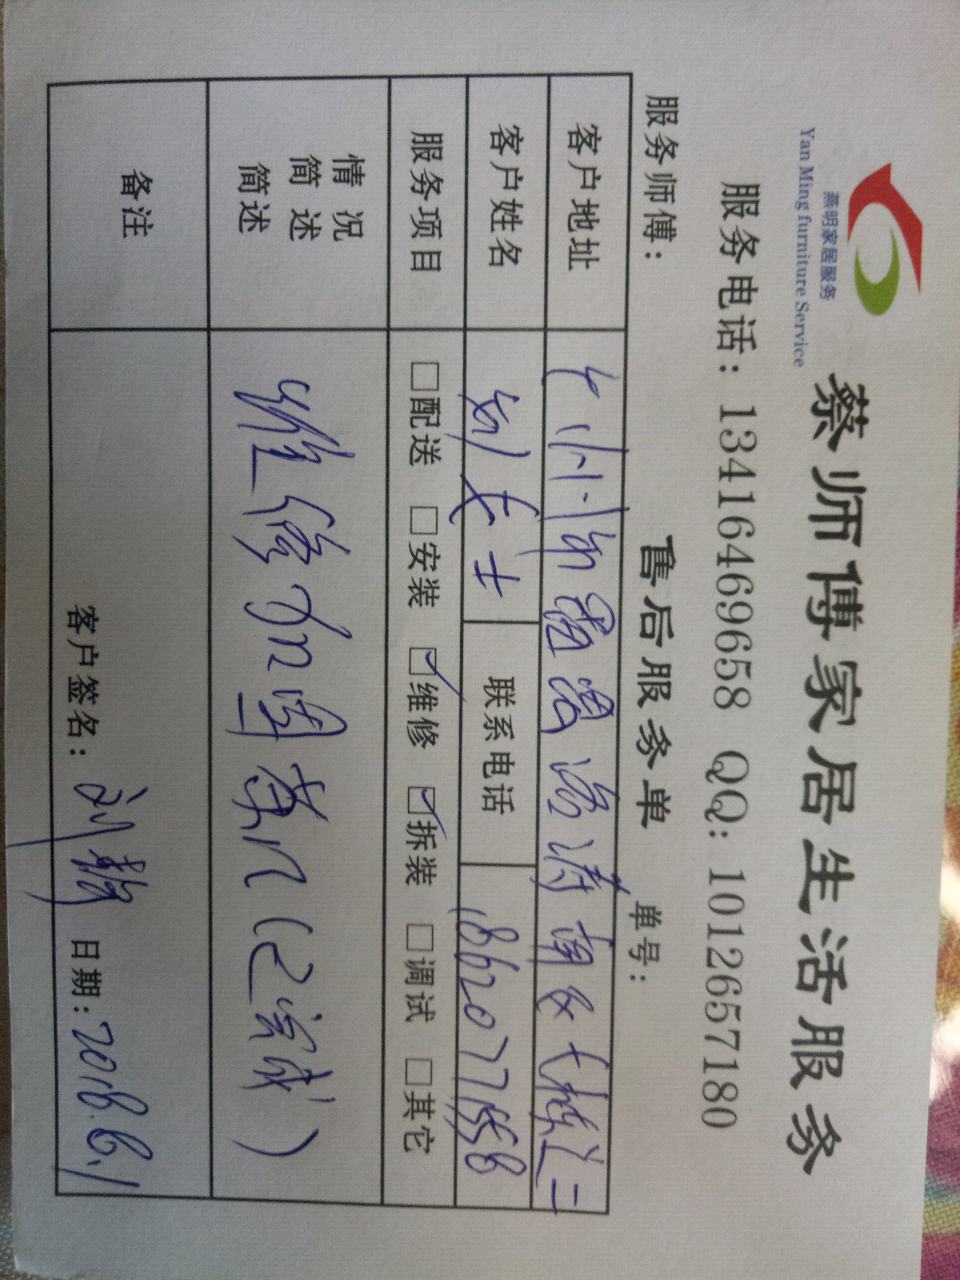 燕明家居服务
Yan Ming furniture Service
蔡师傅家居生活服务
服务电话：13416469658 QQ：1012657180
售后服务单
服务师傅： 单号：
客户地址 广州市
客户姓名 刘女士 联系电话 18620771558
服务项目 □配送 □安装 ☑维修 ☑拆装 □调试 □其它
情况简述简述 维修加固 (已完成)
备注
客户签名：刘 日期：2018.6.1